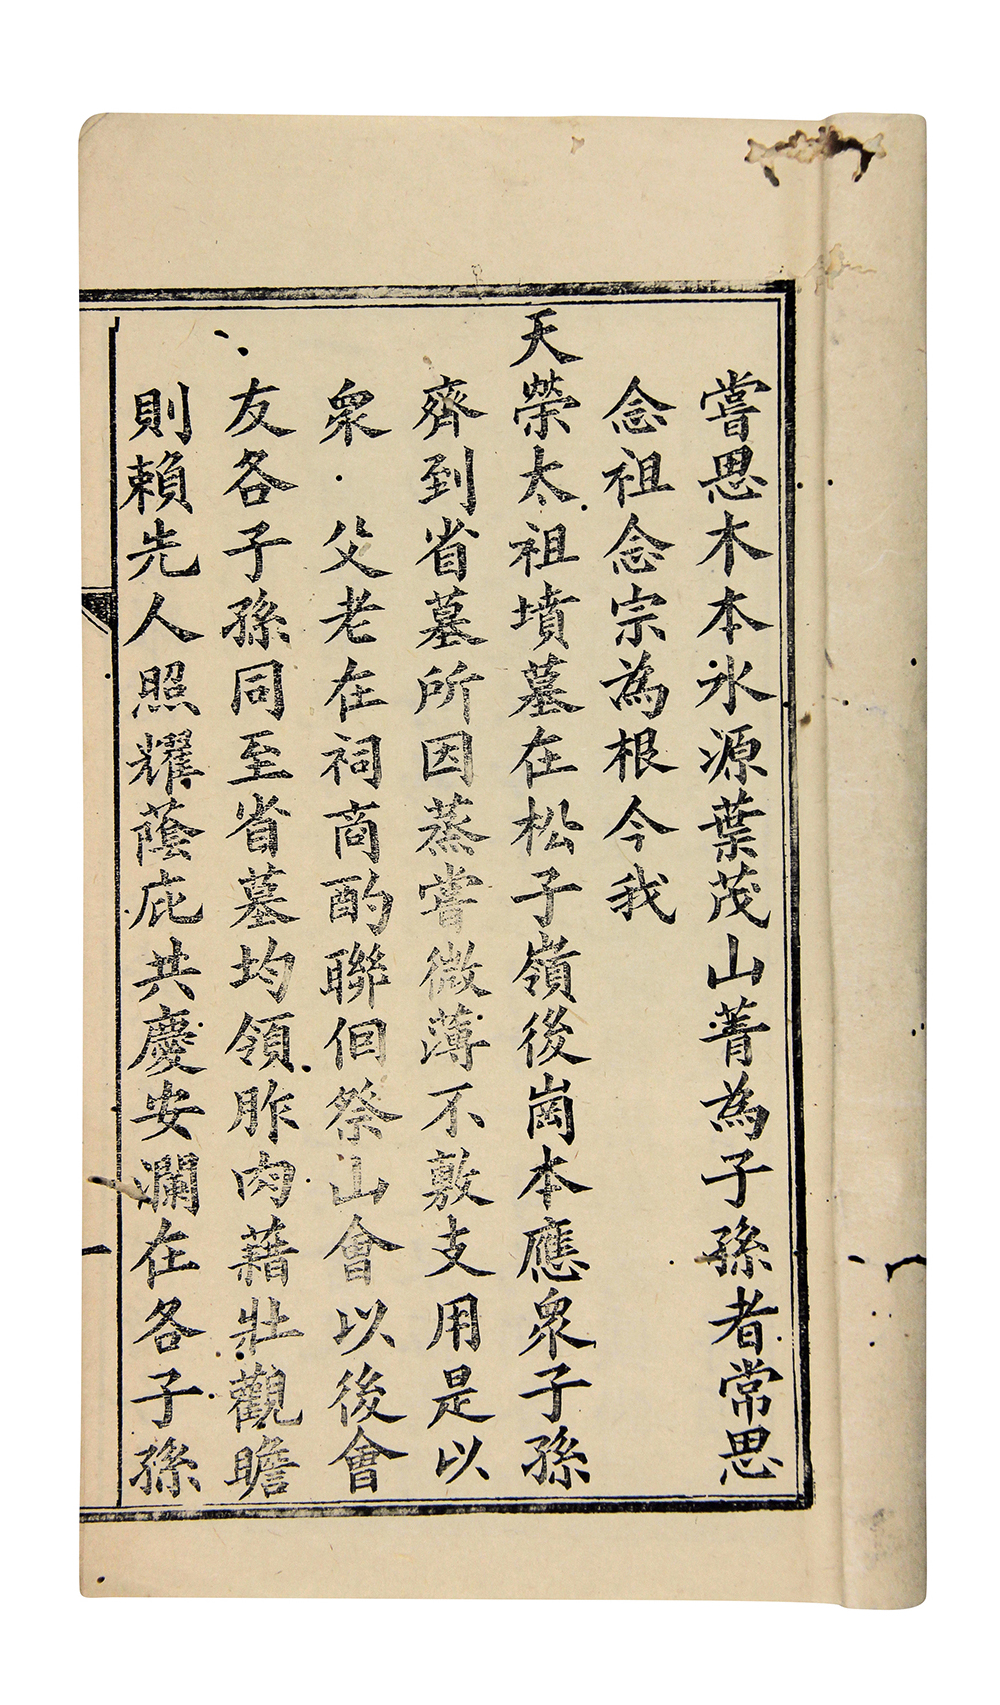 嘗思木本水源葉茂山菁為子孫者常思
念祖念宗為根今我
天榮太祖墳墓在松子嶺後崗本應衆子孫
齊到省墓所因蒸嘗微薄不敷支用是以
衆父老在祠商酌聯佪祭山會以後會
友各子孫同至省墓均領胙肉藉壯觀瞻
則賴先人照耀蔭庇共慶安瀾在各子孫